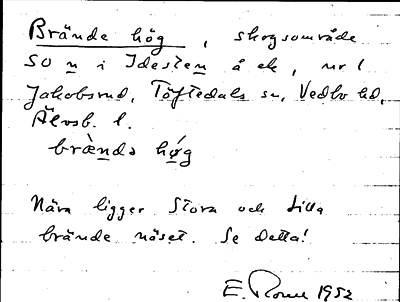 Brände hög, skogsområde
SO n i Idesten å ek, nr 1
Jakobsrud, Töftedals sn, Vedbo hd,
Älvsb. l.
brænda høg
Nära ligger Stora och Lilla
brände näset. Se detta!
E. 1952